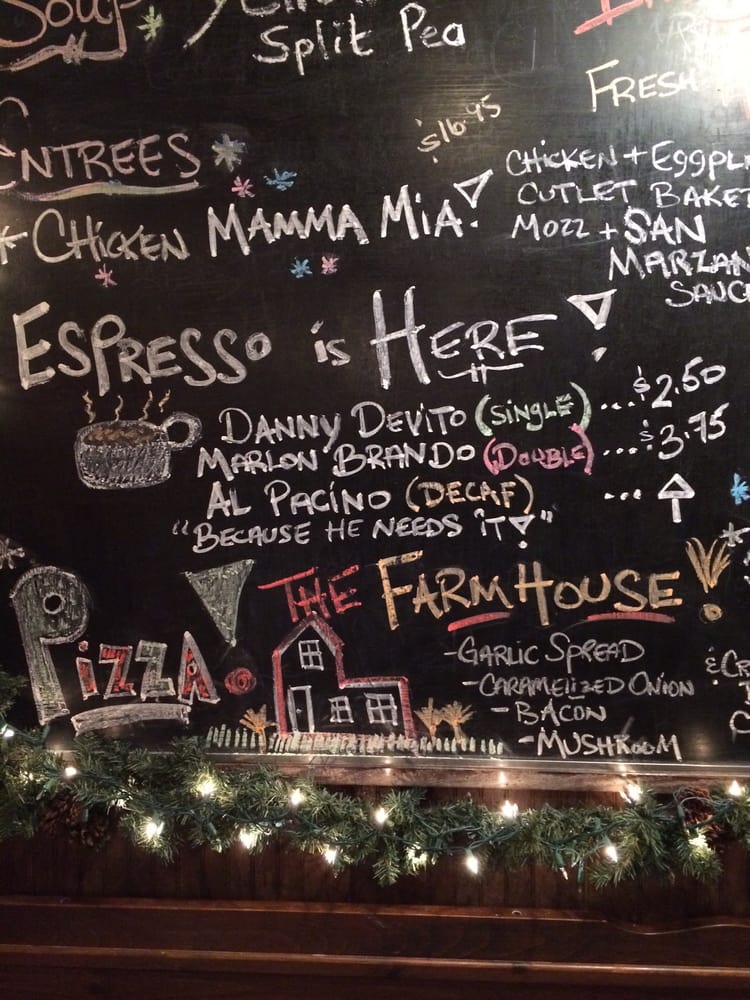 Soup
Split Pea
Fresh
Entrees
$16.95
* Chicken Mamma Mia!
Chicken + Eggpl
Cutlet Baked
Mozz + San
Marzan
Sauc
Espresso is Here!
Danny Devito (Single) ... $2.50
Marlon Brando (Double) ... $3.75
Al Pacino (Decaf) ... ↑
"Because he needs it!"
Pizza!
The Farmhouse!
-Garlic Spread
-Caramelized Onion
-Bacon
-Mushroom